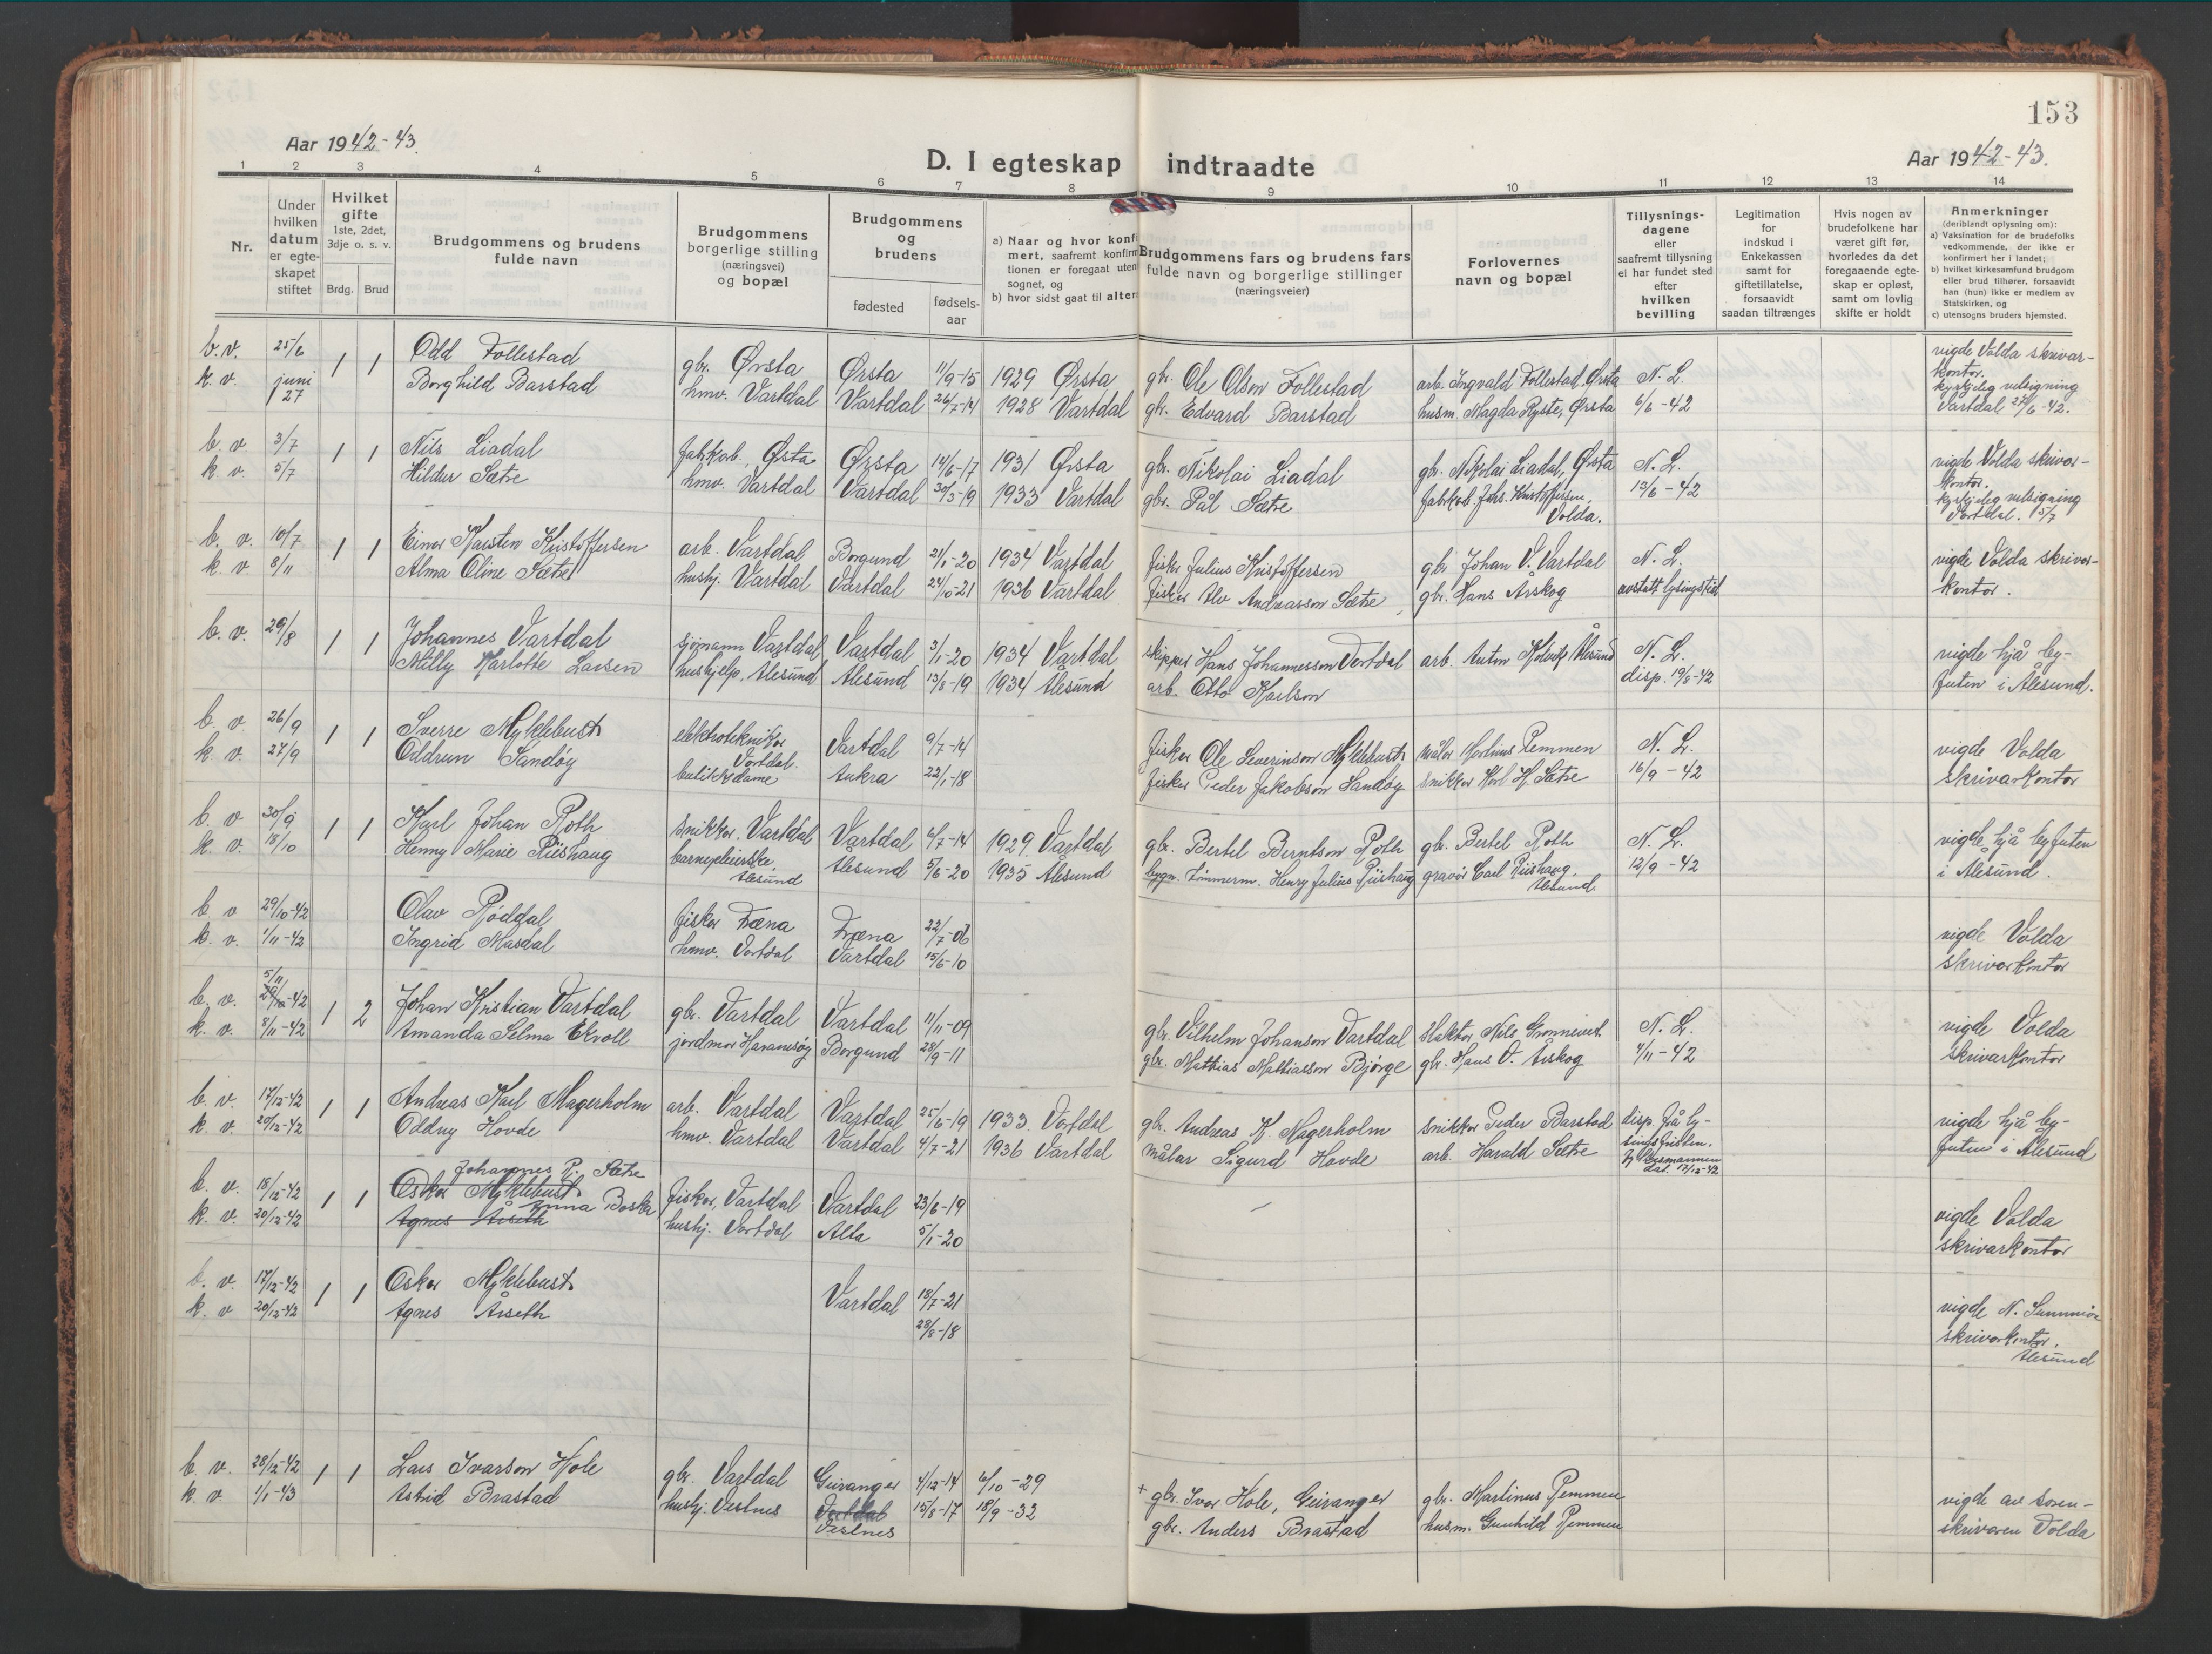 153
Aar 1942-43.
D. I egteskap indtraadte
Aar 1942-43.
1 2 3 4 5 6 7 8 9 10 11 12 13 14
Nr.
Under hvilken datum er egteskapet stiftet
Hvilket gifte 1ste, 2det, 3dje o. s. v.
Brdg. Brud
Brudgommens og brudens fulde navn
Brudgommens borgerlige stilling (næringsvei) og bopæl
Brudgommens og brudens
fødested fødsels-aar
a) Naar og hvor konfi
mert, saafremt konfirm
tionen er foregaat uten
sognet, og
b) hvor sidst gaat til alter
Brudgommens fars og brudens fars
fulde navn og borgerlige stillinger
(næringsveier)
Forlovernes
navn og bopæl
Tillysnings-
dagene
eller
saafremt tillysning
ei har fundet sted
efter
hvilken
bevilling
Legitimation
for
indskud i
Enkekassen
samt for
giftetillatelse,
forsaavidt
saadan tiltrænges
Hvis nogen av
brudefolkene har
været gift før,
hvorledes da det
foregaaende egte-
skap er opløst,
samt om lovlig
skifte er holdt
Anmerkninger
(deriblandt oplysning om):
a) Vaksination for de brudefolks
vedkommende, der ikke er
konfirmert her i landet;
b) hvilket kirkesamfund brudgom
eller brud tilhører, forsaavidt
han (hun) ikke er medlem av
Statskirken, og
c) utensogns bruders hjemsted.
b. v. 25/6 1 1 Odd Follestad gbr. Ørsta Ørsta 11/9-15 1929 Ørsta gbr. Ole Olson Follestad arb. Ingvald Follestad, Ørsta N. L. vigde Volda skrivar-
kontor.
k. v. juni 27 Borghild Barstad hmv. Vartdal Vartdal 26/7-14 1928 Vartdal gbr. Edvard Barstad husm. Magda Ryste, Ørsta 6/6-42 kyrkjeleg velsigning
Vartdal 27/6-42.
b. v. 3/7 1 1 Nils Liadal fabrkarb. Ørsta Ørsta 14/6-17 1931 Ørsta gbr. Nikolai Liadal gbr. Nikolai Liadal, Ørsta N. L. vigde Volda skrivar-
kontor.
k. v. 5/7 Hildur Sætre hmv. Vartdal Vartdal 30/3-19 1933 Vartdal gbr. Pål Sætre fabrkarb. Johs. Kristoffersen, Volda. 13/6-42 kyrkjeleg velsigning
Vartdal. 5/7
b. v. 10/7 1 1 Einar Karsten Kristoffersen arb. Vartdal Borgund 21/1-20 1934 Vartdal fisker Julius Kristoffersen gbr. Johan V. Vartdal N. L. vigde Volda skrivar-
k. v. 8/11 Alma Oline Sætre hushj. Vartdal Vartdal 24/10-21 1936 Vartdal fisker Alv Andreasson Sætre gbr. Hans Årskog avstutt lysingstid kontor.
b. v. 29/8 1 1 Johannes Vartdal sjømann Vartdal Vartdal 3/1-20 1934 Vartdal skipper Hans Johannesson Vartdal arb. Anton Ålesund N. L. vigde hjå by-
Milly Karlotte Larsen hushjelp, Ålesund Ålesund 13/8-19 1934 Ålesund arb. Otto Karlson disp. 19/8-42 futen i Ålesund.
b. v. 26/9 1 1 Sverre Myklebust elektrotekniker Vartdal. Vartdal 9/7-14 fisker Ole Severinson Myklebust målar Martinus Remmen N. L. vigde Volda
k. v. 27/9 Oddrun Sandøy butikkdame Aukra 22/1-18 fisker Peder Jakobson Sandøy snikkar Karl K. Sætre 16/9-42 skrivarkontor
b. v. 30/9 1 1 Karl Johan Roth snikkar. Vartdal Vartdal 6/7-14 1929 Vartdal gbr. Bertel Berntson Roth gbr. Bertel Roth N. L. vigde hjå byfuten
k. v. 18/10 Henny Marie Riishaug barnepleierske, Ålesund Ålesund 5/6-20 1935 Ålesund bygn. tømmerm. Henry Julius Riishaug gravør Carl Riishaug, Ålesund. 12/9-42 i Ålesund.
b. v. 29/10-42 Olav Røddal fisker Fræna Fræna 22/7-06 vigde Volda
k. v. 1/11-42 Ingrid Masdal hmv. Vartdal Vartdal 15/6-10 skrivarkontor
b. v. 5/11 29/10-42 1 2 Johan Kristian Vartdal gbr. Vartdal Vartdal 11/11-09 gbr. Vilhelm Johanson Vartdal slaktar Nils Grønnevet N. L. vigde Volda
k. v. 8/11-42 Amanda Selma Ekroll jordmor Haramsøy Borgund 28/9-11 gbr. Mathias Mathiasson Bjørge gbr. Hans O. Årskog 4/11-42 skrivarkontor
b. v. 17/12-42 1 1 Andreas Karl Magerholm arb. Vartdal Vartdal 25/6-19 1933 Vartdal gbr. Andreas K. Magerholm snikkar Peder Barstad disp. frå ly- vigde hjå by-
k. v. 20/12-42 Oddny Hovde hmv. Vartdal Vartdal 4/7-21 1936 Vartdal målar Sigurd Hovde arb. Harald Sætre singsfristen. futen i Ålesund
dat. 17/12-42
b. v. 18/12-42 1 1 Johannes R. Sætre
Oskar Myklebust fisker, Vartdal Vartdal 23/6-19 vigde Volda
k. v. 20/12-42 Agnes Årseth Anna hushj. Vartdal Alta 5/1-20 skrivarkontor
b. v. 17/12-42 1 1 Oskar Myklebust Vartdal 18/7-21 vigde N. Sunnmøre
k. v. 20/12-42 Agnes Årseth 28/8-18 skrivarkontor, Ålesund
b. v. 28/12-42 1 1 Lars Ivarson Hole gbr. Vartdal Geiranger 4/12-14 6/10-29 + gbr. Ivar Hole, Geiranger gbr. Martinus Remmen vigde av soren-
k. v. 1/1-43 Astrid Brastad hushj. Vestnes Vartdal Vestnes 15/8-17 18/9-32 gbr. Anders Brastad husm. Gunhild Remmen skrivaren Volda